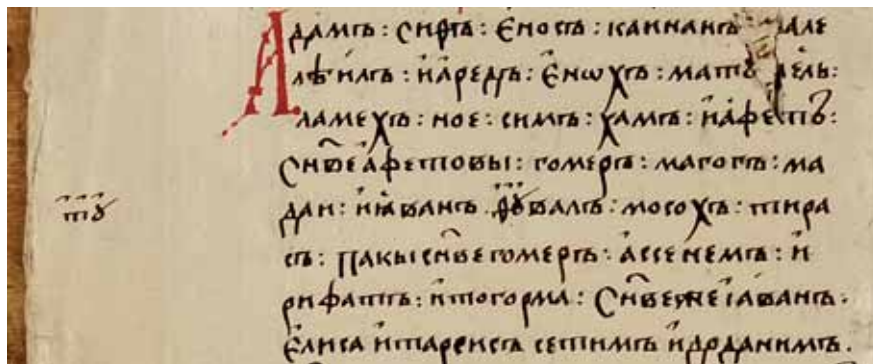 Адамъ : Сиѳъ : Еносъ : каинанъ : мале
лѣилъ : иаредъ : Енѡхъ : матꙋ ѳелъ :
ламехъ : ное : симъ : хамъ : иафетъ :
Сн҃ве афетовы : гомеръ : магогъ : ма
даи : иꙗванъ ѳꙋвалъ : мосохъ : тира
съ : Пакы сн҃ве гомеръ : ассенемъ : и
рифатъ : итогорма : Сн҃ве же іаванъ .
Елиса итарсисъ сетимъ идоданимъ .
тꙋ